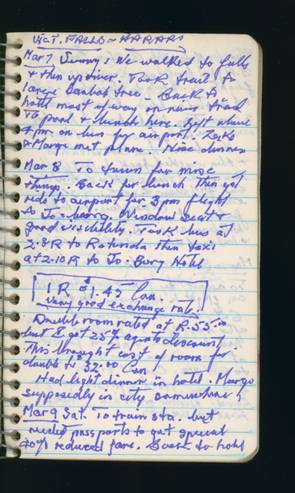 Vict. FALLS ~ HARARE
Mar 7 Sunny; We walked to falls
& then up river. Took trail to
large Baobab tree. Back to
hotel most of way on main road
to pool & lunch here. Left where
4 pm on bus for airport.
& Margo met plane. Nice dinner
Mar 8 To town for misc
things. Back for lunch then got
ride to airport for 3 pm flight
to Jo-burg. Window seat &
good visibility. Took bus at
2.8 R to Rotunda then taxi
at 2.10 R to Jo-Burg Hotel
1 R = $1.45 Can.
very good exchange rate.
Double room rated at R.55.00
but I got 25% discount
This brought cost of room for
double to 32.00 Can
Had light dinner in hotel. Margo
supposedly in city somewhere?
Mar 9 Sat. To train sta. but
needed passports to get special
40% reduced fare. Back to hotel